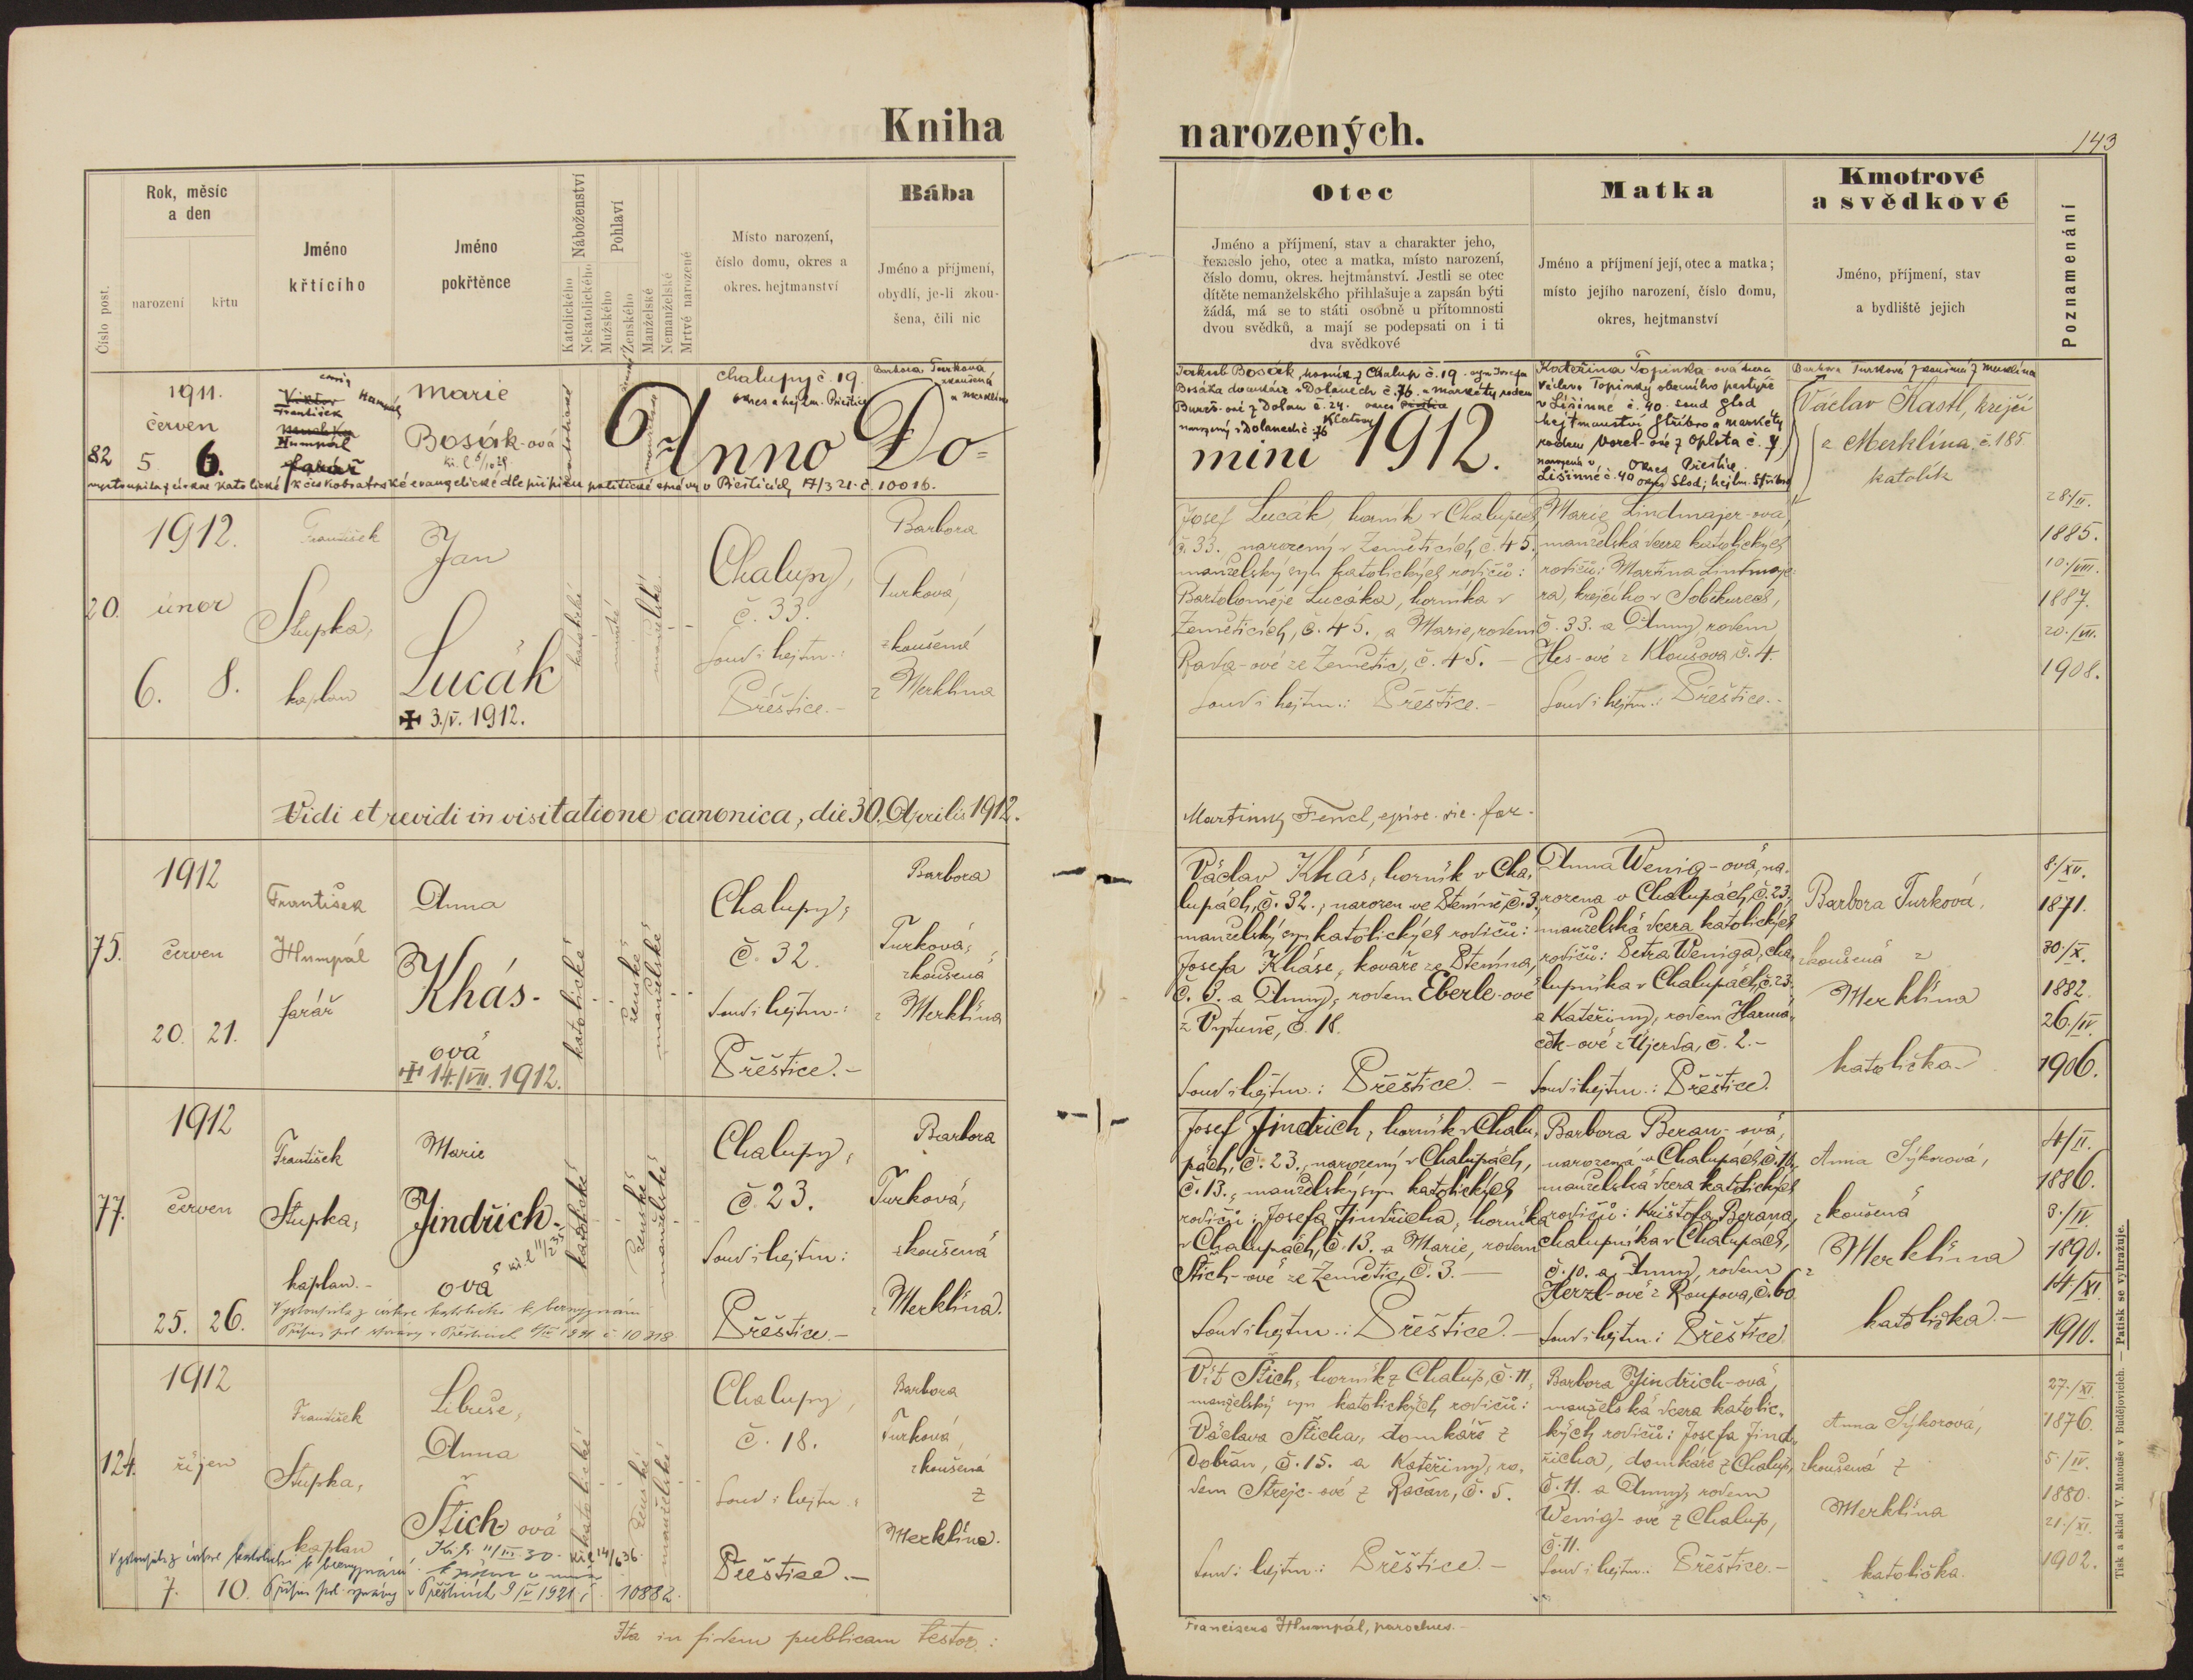 Kniha narozených.
143
Číslo post.
Rok, měsíc
a den
narození
křtu
Jméno
křtícího
Jméno
pokřtěnce
Náboženství
Katolického
Nekatolického
Pohlaví
Mužského
Ženského
Manželské
Nemanželské
Mrtvé narozené
Místo narození,
číslo domu, okres a
okres. hejtmanství
Bába
Jméno a příjmení,
obydlí, je-li zkou-
šena, čili nic
Otec
Jméno a příjmení, stav a charakter jeho,
řemeslo jeho, otec a matka, místo narození,
číslo domu, okres. hejtmanství. Jestli se otec
dítěte nemanželského přihlašuje a zapsán býti
žádá, má se to státi osobně u přítomnosti
dvou svědků, a mají se podepsati on i ti
dva svědkové
Matka
Jméno a příjmení její, otec a matka;
místo jejího narození, číslo domu,
okres, hejtmanství
Kmotrové
a svědkové
Jméno, příjmení, stav
a bydliště jejich
Poznamenání
82
1911.
červen
5 6.
František
Humpál
farář
Marie
Bosák-ová
chalupy č. 19.
okres a hejtm. Přeštice
Barbora Turková
zkoušená
z Merklína
Jakub Bosák, horník z Chalup č. 19. syn Josefa
Bosáka domkáře v Dolanech č. 76. a Markéty rodem
Bureš-ové z Dolan č. 24. okres
Klatovy
narozený v Dolanech č. 76
Kateřina Topinka-ová dcera
Václava Topinky obecního pastýře
v Lišinné č. 40. soud Stod
hejtmanství Stříbro a Markéty
rodem Vorel-ové z Oplota č. 4
okres Přeštice.
narozená v
Lišinné č. 40 okres Stod; hejtm. Stříbro
Barbora Turková zkoušená z Merklína
Václav Kastl, krejčí
z Merklína č. 185
katolík
vystoupila z církve katolické k českobratrské evangelické dle přípisu politické správy v Přešticích 17/3 21. č. 10016.
Anno Domini 1912.
20.
1912.
únor
6. 8.
František
Stupka,
kaplan
Jan
Lucák
✠ 3./V. 1912.
katolické
mužské
manželské
Chalupy,
č. 33.
soud i hejtm.:
Přeštice.-
Barbora
Turková,
zkoušená
z Merklína
Josef Lucák, horník v Chalupech,
č. 33. narozený v Zemětících, č. 45,
manželský syn katolických rodičů:
Bartoloměje Lucáka, horníka v
Zemětících, č. 45., a Marie, rodem
Rada-ové ze Zemětic, č. 45. -
Soud i hejtm.: Přeštice.-
Marie Lindmajer-ová,
manželská dcera katolických
rodičů: Martina Lindmaje-
ra, krejčího v Soběkurech,
č. 33. a Anny, rodem
Hes-ové z Kloušova č. 4.
Soud i hejtm.: Přeštice.-
28./II.
1885.
10./VIII.
1887.
20./VII.
1908.
Vidi et revidi in visitatione canonica, die 30. Aprilis 1912.
Martinus Fencl, episc. vic. for.
75.
1912
červen
20. 21.
František
Humpál
farář
Anna
Khás-
ová
✠ 14./VII. 1912.
katolické
ženské
manželské
Chalupy,
č. 32.
Soud i hejtm.:
Přeštice.-
Barbora
Turková,
zkoušená
z Merklína
Václav Khás, horník v Cha-
lupách, č. 32., narozen ve Stěníně, č. 3.,
manželský syn katolických rodičů:
Josefa Kháse, kováře ze Stěnína,
č. 3. a Anny, rodem Eberle-ové
z Vytuně, č. 18.
Soud i hejtm.: Přeštice. -
Anna Wenig-ová, na-
rozena v Chalupách, č. 23.,
manželská dcera katolických
rodičů: Petra Weniga, cha-
lupníka v Chalupách, č. 23.
a Kateřiny, rodem Harmá-
ček-ové z Újezda, č. 2.-
Soud i hejtm.: Přeštice.
Barbora Turková,
zkoušená z
Merklína
katolička
8./XII.
1871.
30./X.
1882.
26./IV.
1906.
77.
1912
červen
25. 26.
František
Stupka,
kaplan.-
Marie
Jindřich-
ová
katolické
ženské
manželské
Chalupy,
č. 23.
Soud i hejtm:
Přeštice.-
Barbora
Turková,
zkoušená
z Merklína.
Vystoupila z církve katolické k bezvyznání
Josef Jindřich, horník v Chalu-
pách, č. 23., narozený v Chalupách,
č. 13., manželský syn katolických
rodičů: Josefa Jindřicha, horníka
v Chalupách, č. 13. a Marie, rodem
Štich-ové ze Zemětic, č. 3. -
Soud i hejtm.: Přeštice.-
Barbora Beran-ová,
narozená v Chalupách, č. 10.,
manželská dcera katolických
rodičů: Krištofa Berana,
chalupníka v Chalupách,
č. 10. a Anny, rodem
Herzl-ové z Roupova, č. 60.
Soud i hejtm: Přeštice
Anna Sýkorová,
zkoušená
z Merklína
katolička.-
4/II.
1886.
3./IV.
1890.
14/XI.
1910.
124.
1912
říjen
7. 10.
František
Stupka,
kaplan
Libuše,
Anna
Štich-ová
katolické
ženské
manželské
Chalupy,
č. 18.
Soud i hejtm.:
Přeštice.-
Barbora
Turková
zkoušená
z
Merklína.
Vystoupila z církve katolické k bezvyznání
Přípis pol. správy v Přešticích 9/V 1921 č. 10882.
Vít Štich, horník z Chalup, č. 11,
manželský syn katolických rodičů:
Václava Šticha, domkáře z
Dobřan, č. 15. a Kateřiny, ro-
dem Strejc-ové z Račan, č. 5.
Soud i hejtm.: Přeštice.-
Barbora Jindřich-ová,
manželská dcera katolic-
kých rodičů: Josefa Jind-
řicha, domkáře z Chalup,
č. 11. a Anny, rodem
Wenig-ové z Chalup,
č. 11.
Soud i hejtm.: Přeštice.-
Anna Sýkorová,
zkoušená z
Merklína
katolička.
27./XI.
1876.
5./IV.
1880.
21./XI.
1902.
Ita in fidem publicam testor:
Franciscus Humpál, parochus.-
Tisk a sklad V. Matouše v Budějovicích. — Patisk se vyhražuje.